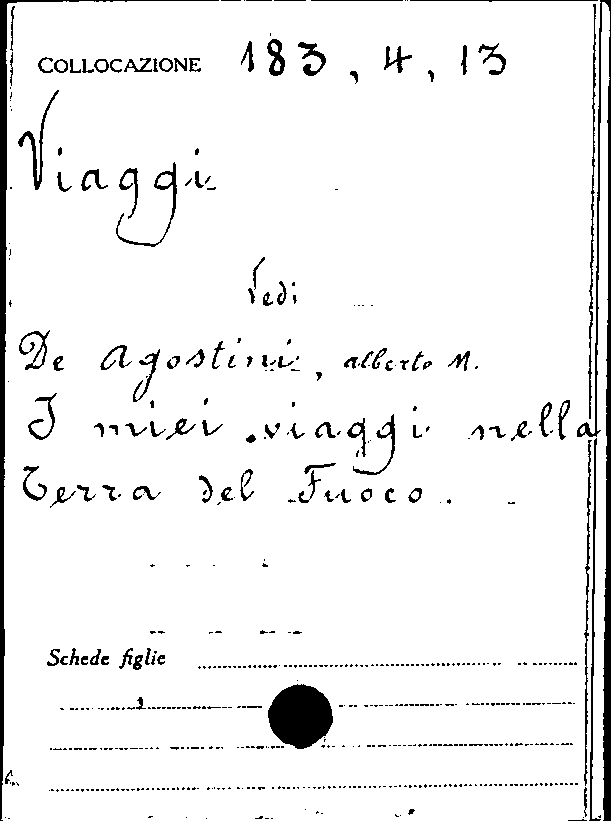 COLLOCAZIONE 183, 4, 13
Viaggi
Vedi
De Agostini, Alberto M.
I miei viaggi nella
Terra del Fuoco.
Schede figlie